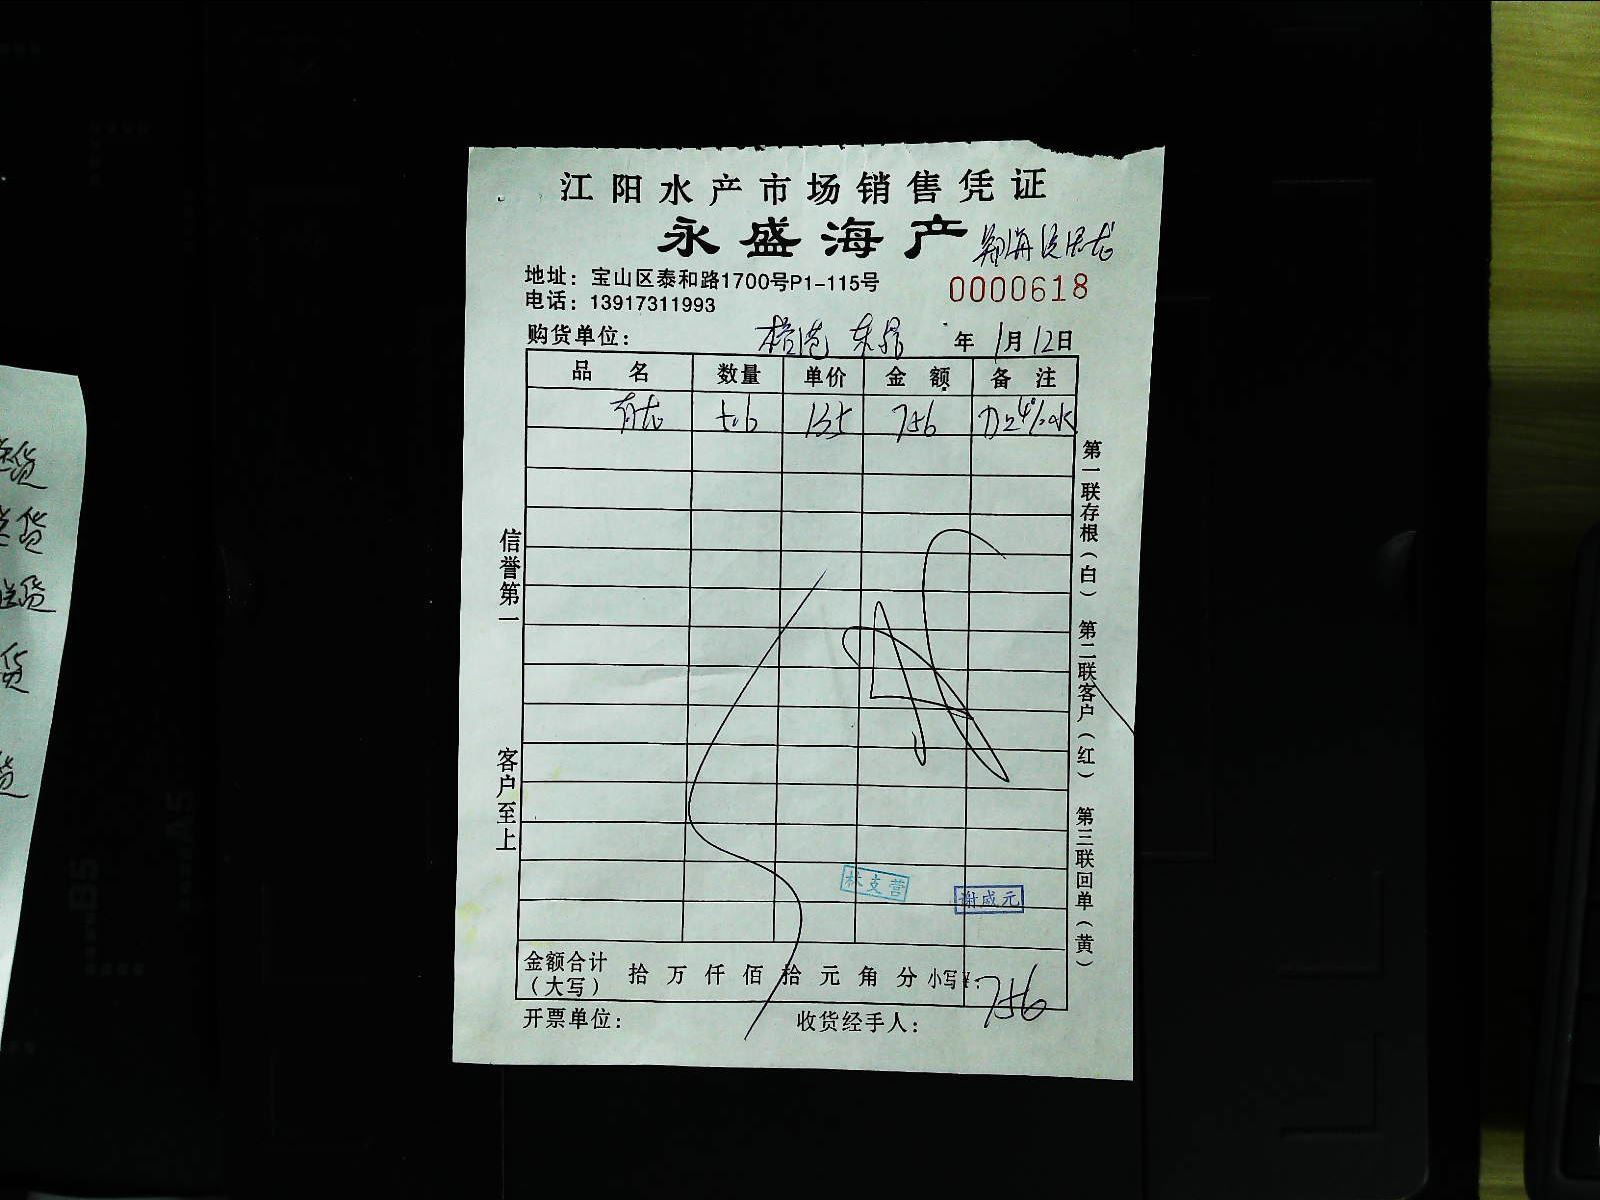 江阳水产市场销售凭证
永盛海产
地址：宝山区泰和路1700号P1-115号
0000618
电话：13917311993
购货单位： 年 1月12日
品名 数量 单价 金额 备注
青龙 5.6 135 756
信誉第一
客户至上
第一联存根（白） 第二联客户（红） 第三联回单（黄）
林支营
谢成元
金额合计（大写） 拾 万 仟 佰 拾 元 角 分 小写¥： 756
开票单位： 收货经手人：
货
货
货
货
货
B5
A5